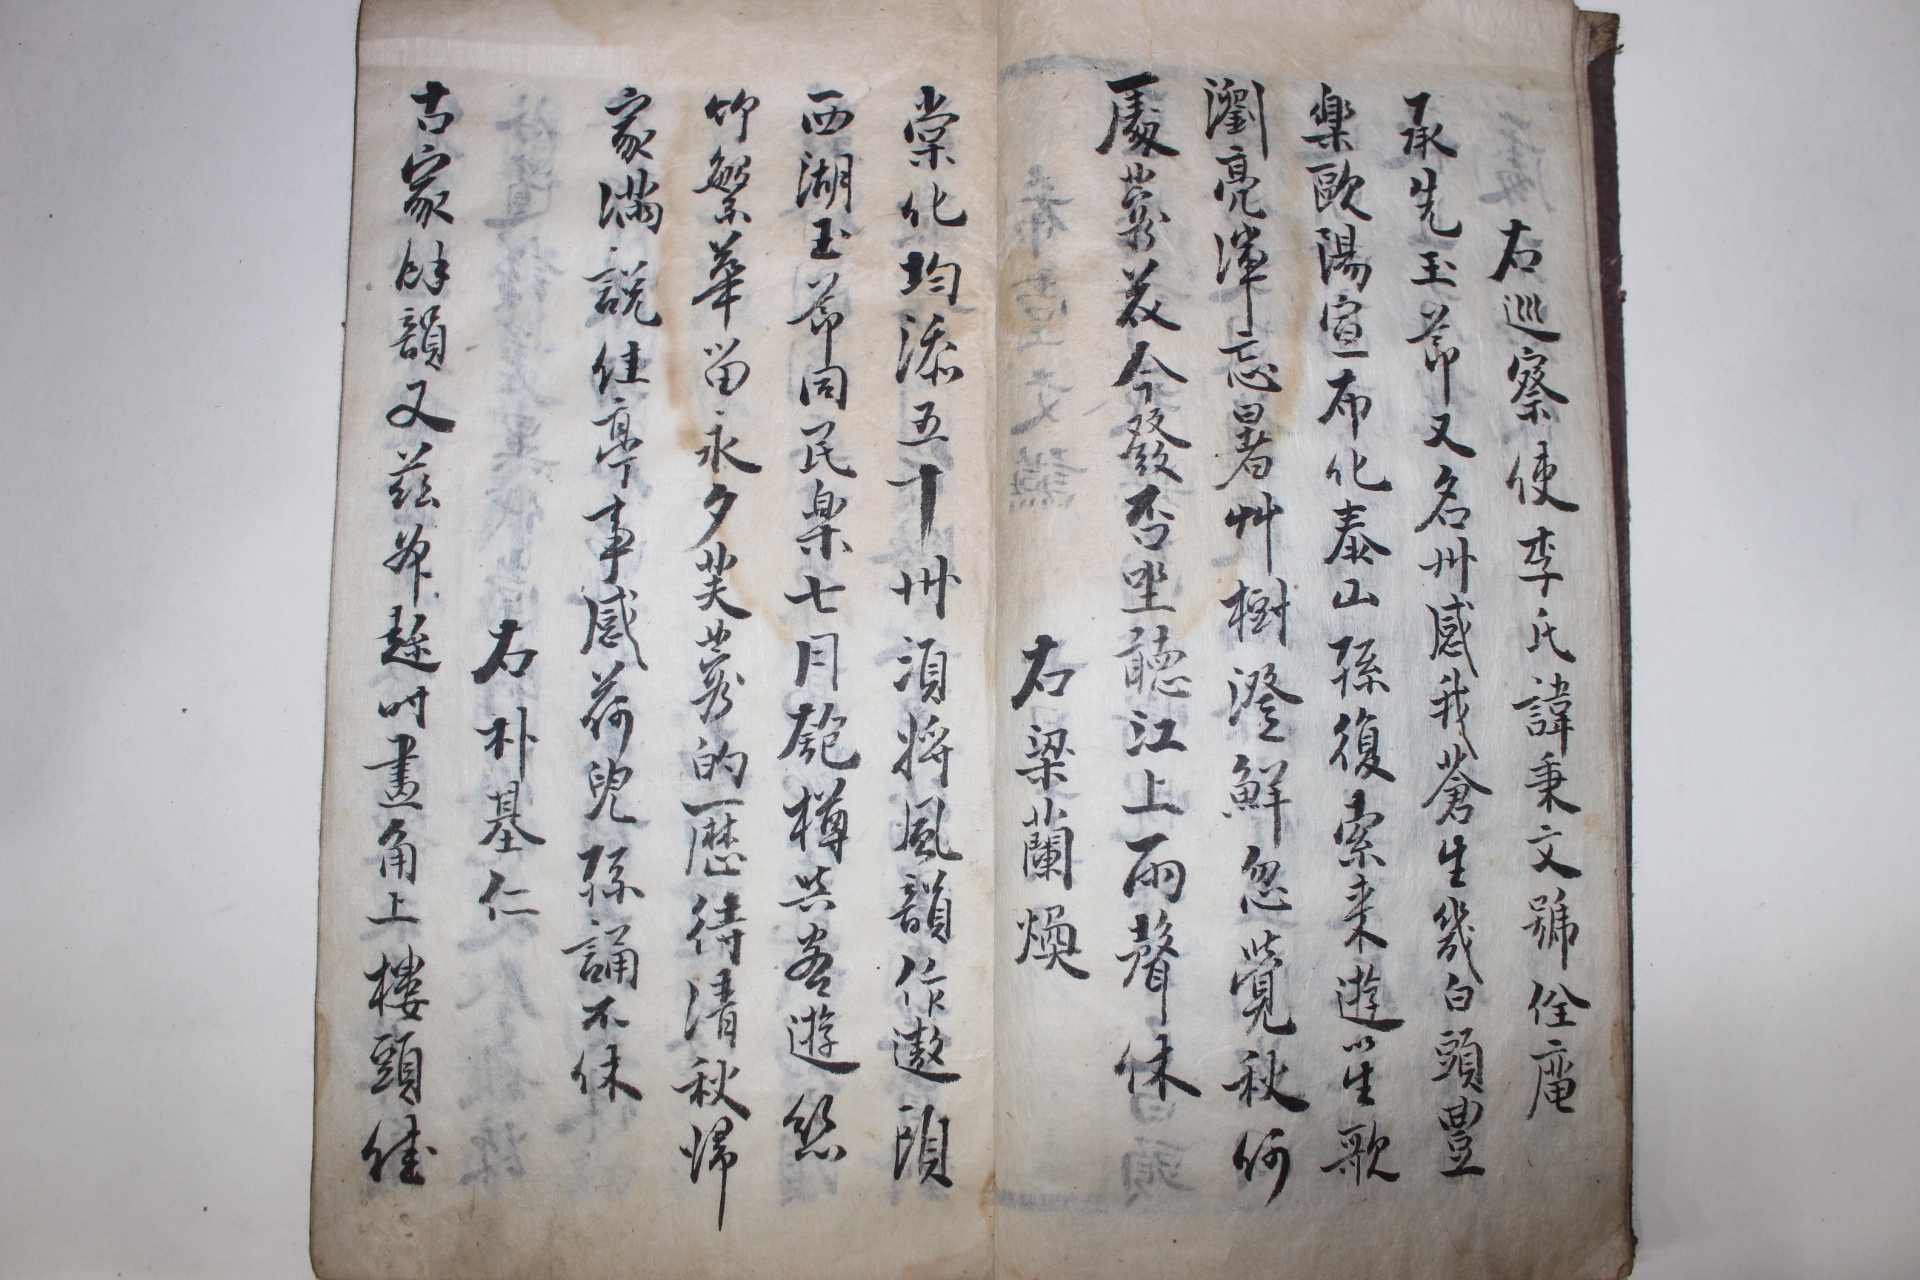 右巡察使李氏諱秉文號佺庵
承先玉節又名州感我蒼生幾白頭豊
樂歐陽宣布化泰山孫復索来遊笙歌
瀏亮渾忘暑艸樹澄鮮忽覺秋何
處蒹葭今發否坐聽江上雨聲休
右梁蘭煥
棠化均添五十州須將風韻作遨頭
西湖玉節同民樂七月匏樽共客遊絲
竹繁華留永夕芙蓉的歷待清秋歸
家满說佳亭事感荷兒孫誦不休
右朴基仁
古家餘韻又茲州畫角上樓頭佳